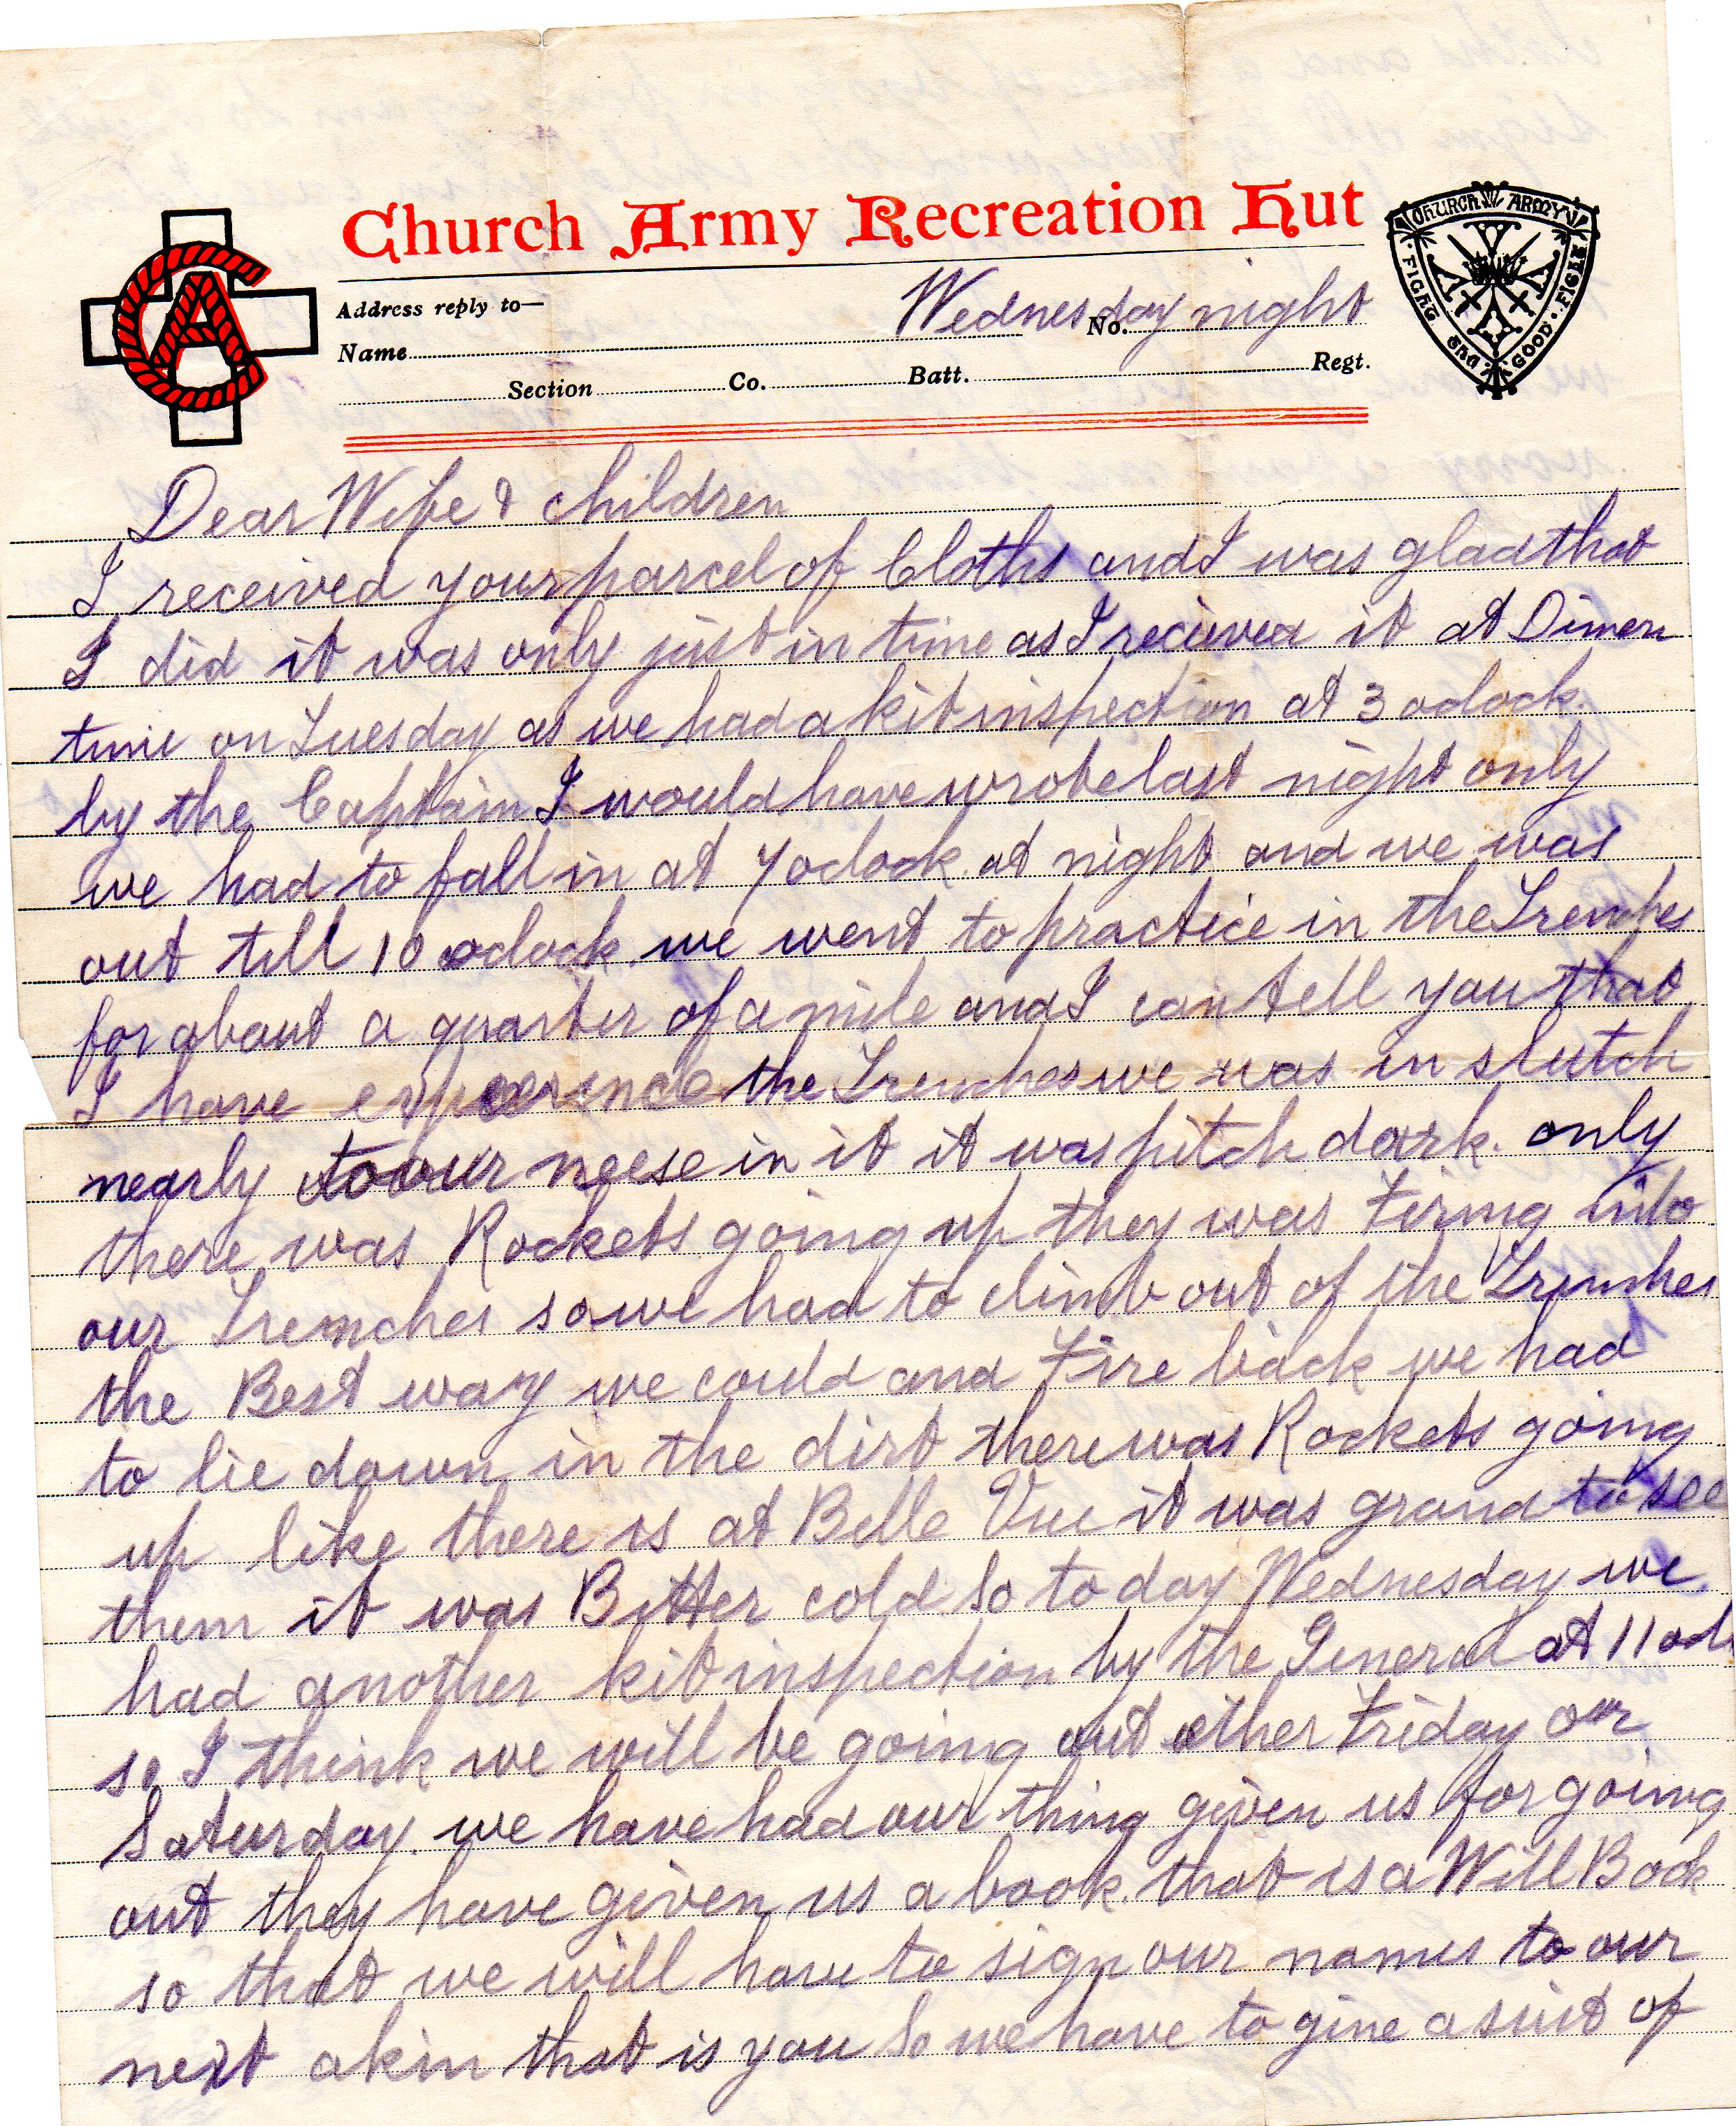 Church Army Recreation Hut
CHURCH ARMY
FIGHT THE GOOD FIGHT
CA
Address reply to—
Wednesday night
Name No.
Section Co. Batt. Regt.
Dear Wife & children
I received your parcel of Cloths and I was glad that
I did it was only just in time as I recieved it at Dinner
time on Tuesday as we had a kit inspection at 3 oclock.
by the Captain I would have wrote last night only
we had to fall in at 7 oclock at night and we was
out till 10 oclock. we went to practice in the Trenches
for about a quarter of a mile and I can tell you that
I have experience the Trenches we was in slutch
nearly to our neese in it it was pitch dark. only
there was Rockets going up they was Firing into
our Trenches so we had to climb out of the Trenches
the Best way we could and Fire back we had
to lie down in the dirt there was Rockets going
up like there is at Belle Vue it was grand to see
them it was Bitter cold. So to day Wednesday we
had another kit inspection by the General at 11 ocl
so I think we will be going out other Friday or
Saturday. we have had our thing given us for going
out they have given us a book. that is a Will Book
so that we will have to sign our names to our
next akin that is you So we have to give a suit of